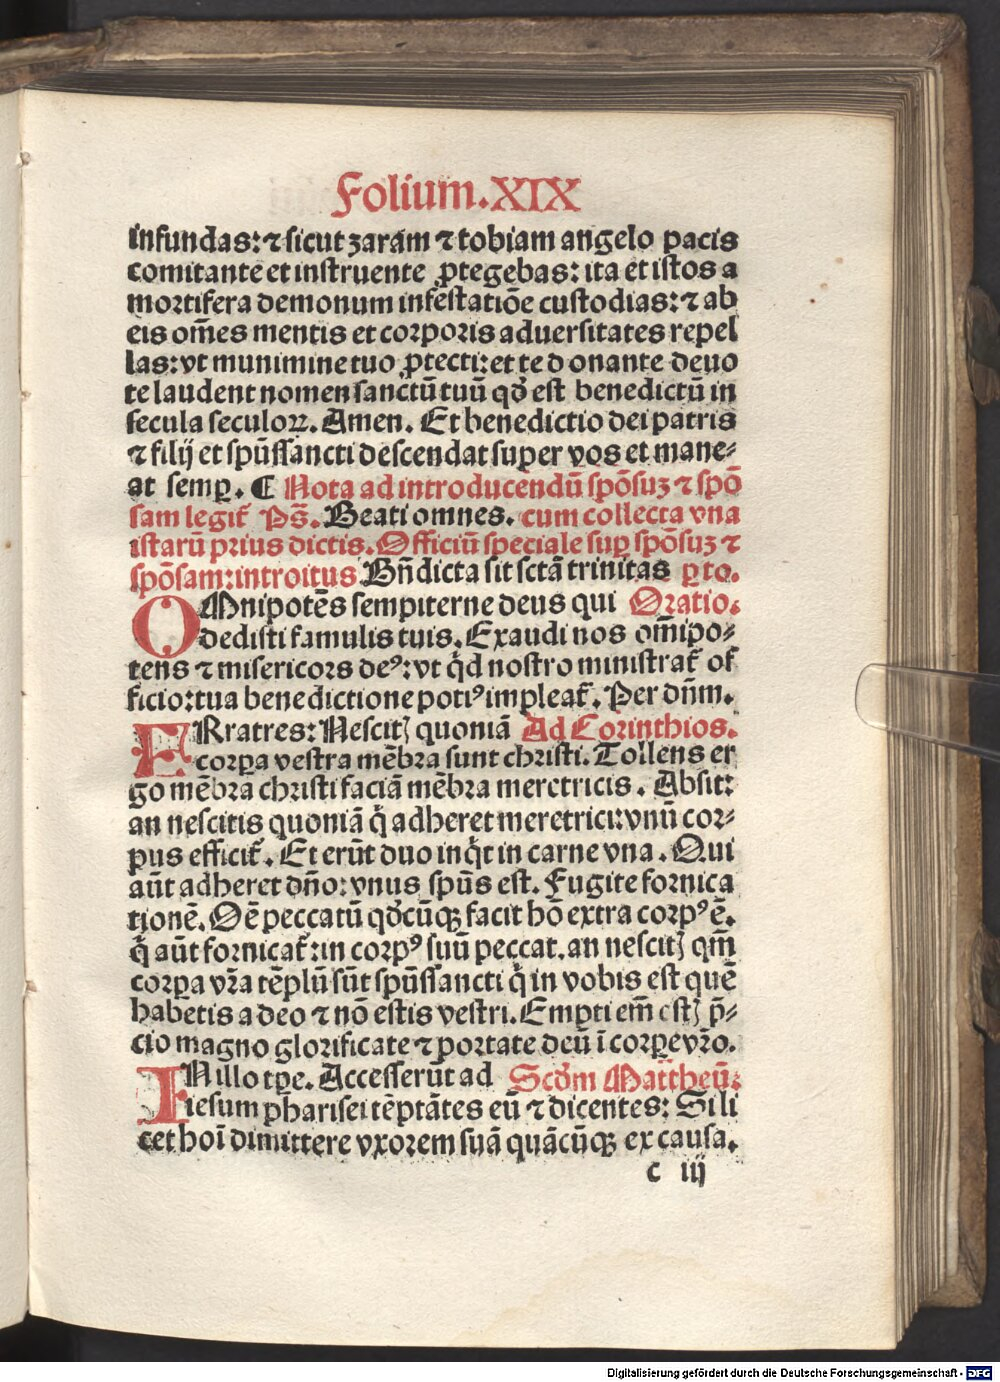 Folium.XIX
infundas: ⁊ sicut zaram ⁊ tobiam angelo pacis
comitante et instruente ꝓtegebas: ita et istos a
mortifera demonum infestatiōe custodias: ⁊ ab
eis om̄es mentis et corporis aduersitates repel
las: vt munimine tuo ꝓtecti: et te d onante deuo
te laudent nomen sanctū tuū qđ est benedictū in
secula seculoꝝ. Amen. Et benedictio dei patris
⁊ filij et spūssancti descendat super vos et mane⸗
at semꝑ. ¶ Nota ad introducendū spōsuꝫ ⁊ spō
sam legit᷑ Ps̄. Beati omnes. cum collecta vna
istarū prius dictis. Officiū speciale suꝑ spōsuꝫ ⁊
spōsam: introitus Bn̄dicta sit sctā trinitas ꝑ to.
OMnipotēs sempiterne deus qui Oratio.
dedisti famulis tuis. Exaudi nos om̄ipo⸗
tens ⁊ misericors deꝰ: vt qd̄ nostro ministrat᷑ of
ficio: tua benedictione potiꝰ impleat᷑. Per dn̄m.
FRratres: Nescitꝭ quoniā Ad Corinthios.
corꝑa vestra mēbra sunt christi. Tollens er
go mēbra christi faciā mēbra meretricis. Absit:
an nescitis quoniā q̄ adheret meretrici: vnū cor⸗
pus efficit᷑. Et erūt duo inqͥt in carne vna. Qui
aūt adheret dn̄o: vnus spūs est. Fugite fornica
tionē. Oē peccatū qđcūqꝫ facit hō extra corpꝰ ē.
q̄ aūt fornicat᷑: in corpꝰ suū peccat. an nescitꝭ qm̄
corꝑa vr̄a tēplū sūt spūssancti q̄ in vobis est quē
habetis a deo ⁊ nō estis vestri. Empti em̄ estꝭ p̄⸗
cio magno glorificate ⁊ portate deū ī corꝑe vr̄o.
IN illo tꝑe. Accesserūt ad Scđm Mattheū:
iesum pharisei tēptātes eū ⁊ dicentes: Si li
cet hoī dimittere vxorem suā quācūqꝫ ex causa.
c iij
Digitalisierung gefördert durch die Deutsche Forschungsgemeinschaft - DFG